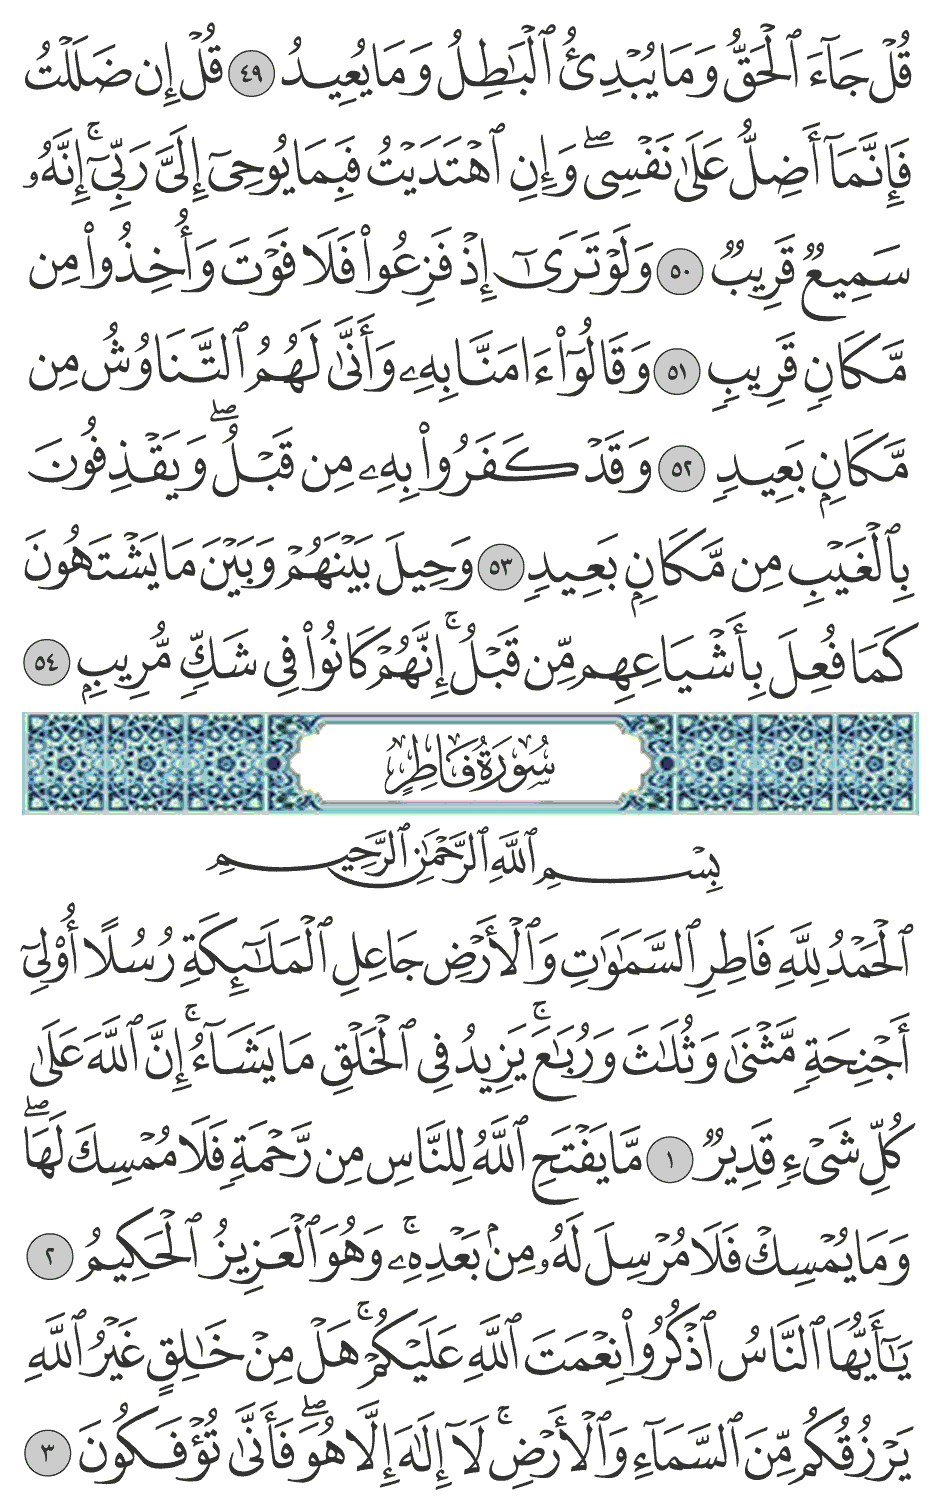 قُلۡ جَآءَ ٱلۡحَقُّ وَمَا يُبۡدِئُ ٱلۡبَٰطِلُ وَمَا يُعِيدُ ٤٩ قُلۡ إِن ضَلَلۡتُ
فَإِنَّمَآ أَضِلُّ عَلَىٰ نَفۡسِيۖ وَإِنِ ٱهۡتَدَيۡتُ فَبِمَا يُوحِيٓ إِلَيَّ رَبِّيٓۚ إِنَّهُۥ
سَمِيعٞ قَرِيبٞ ٥٠ وَلَوۡ تَرَىٰٓ إِذۡ فَزِعُواْ فَلَا فَوۡتَ وَأُخِذُواْ مِن
مَّكَانٖ قَرِيبٖ ٥١ وَقَالُوٓاْ ءَامَنَّا بِهِۦ وَأَنَّىٰ لَهُمُ ٱلتَّنَاوُشُ مِن
مَّكَانِۭ بَعِيدٖ ٥٢ وَقَدۡ كَفَرُواْ بِهِۦ مِن قَبۡلُۖ وَيَقۡذِفُونَ
بِٱلۡغَيۡبِ مِن مَّكَانِۭ بَعِيدٖ ٥٣ وَحِيلَ بَيۡنَهُمۡ وَبَيۡنَ مَا يَشۡتَهُونَ
كَمَا فُعِلَ بِأَشۡيَاعِهِم مِّن قَبۡلُۚ إِنَّهُمۡ كَانُواْ فِي شَكّٖ مُّرِيبِۭ ٥٤
سُورَةُ فَاطِرٍ
بِسۡمِ ٱللَّهِ ٱلرَّحۡمَٰنِ ٱلرَّحِيمِ
ٱلۡحَمۡدُ لِلَّهِ فَاطِرِ ٱلسَّمَٰوَٰتِ وَٱلۡأَرۡضِ جَاعِلِ ٱلۡمَلَٰٓئِكَةِ رُسُلًا أُوْلِيٓ
أَجۡنِحَةٖ مَّثۡنَىٰ وَثُلَٰثَ وَرُبَٰعَۚ يَزِيدُ فِي ٱلۡخَلۡقِ مَا يَشَآءُۚ إِنَّ ٱللَّهَ عَلَىٰ
كُلِّ شَيۡءٖ قَدِيرٞ ١ مَّا يَفۡتَحِ ٱللَّهُ لِلنَّاسِ مِن رَّحۡمَةٖ فَلَا مُمۡسِكَ لَهَاۖ
وَمَا يُمۡسِكۡ فَلَا مُرۡسِلَ لَهُۥ مِنۢ بَعۡدِهِۦۚ وَهُوَ ٱلۡعَزِيزُ ٱلۡحَكِيمُ ٢
يَٰٓأَيُّهَا ٱلنَّاسُ ٱذۡكُرُواْ نِعۡمَتَ ٱللَّهِ عَلَيۡكُمۡۚ هَلۡ مِنۡ خَٰلِقٍ غَيۡرُ ٱللَّهِ
يَرۡزُقُكُم مِّنَ ٱلسَّمَآءِ وَٱلۡأَرۡضِۚ لَآ إِلَٰهَ إِلَّا هُوَۖ فَأَنَّىٰ تُؤۡفَكُونَ ٣